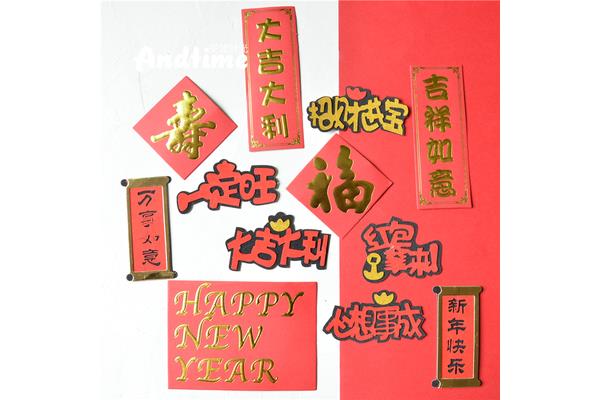 Andtime
大吉大利
寿
招财进宝
吉祥如意
福
一定旺
万事如意
大吉大利
红包拿来
HAPPY
NEW
YEAR
心想事成
新年快乐